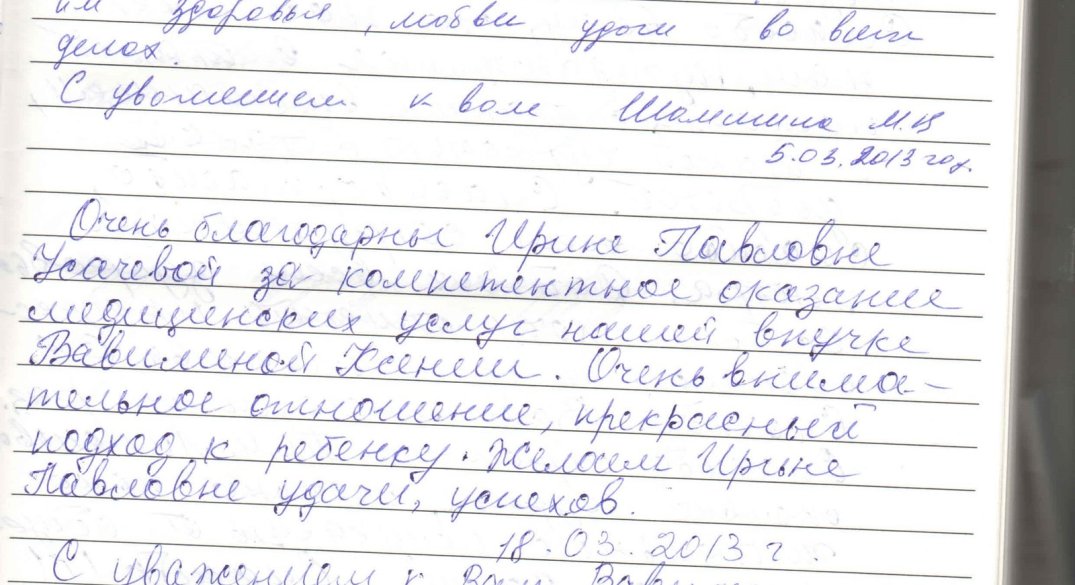 им здоровья, любви удачи во всех
делах.
С уважением к вам Шамшина М.В
5.03.2013 год.
Очень благодарны Ирине Павловне
Усачевой за компетентное оказание
медицинских услуг нашей внучке
Вавилиной Ксении. Очень внима-
тельное отношение, прекрасный
подход к ребенку. Желаем Ирине
Павловне удачи, успехов.
18.03.2013 г.
С уважением к Вам